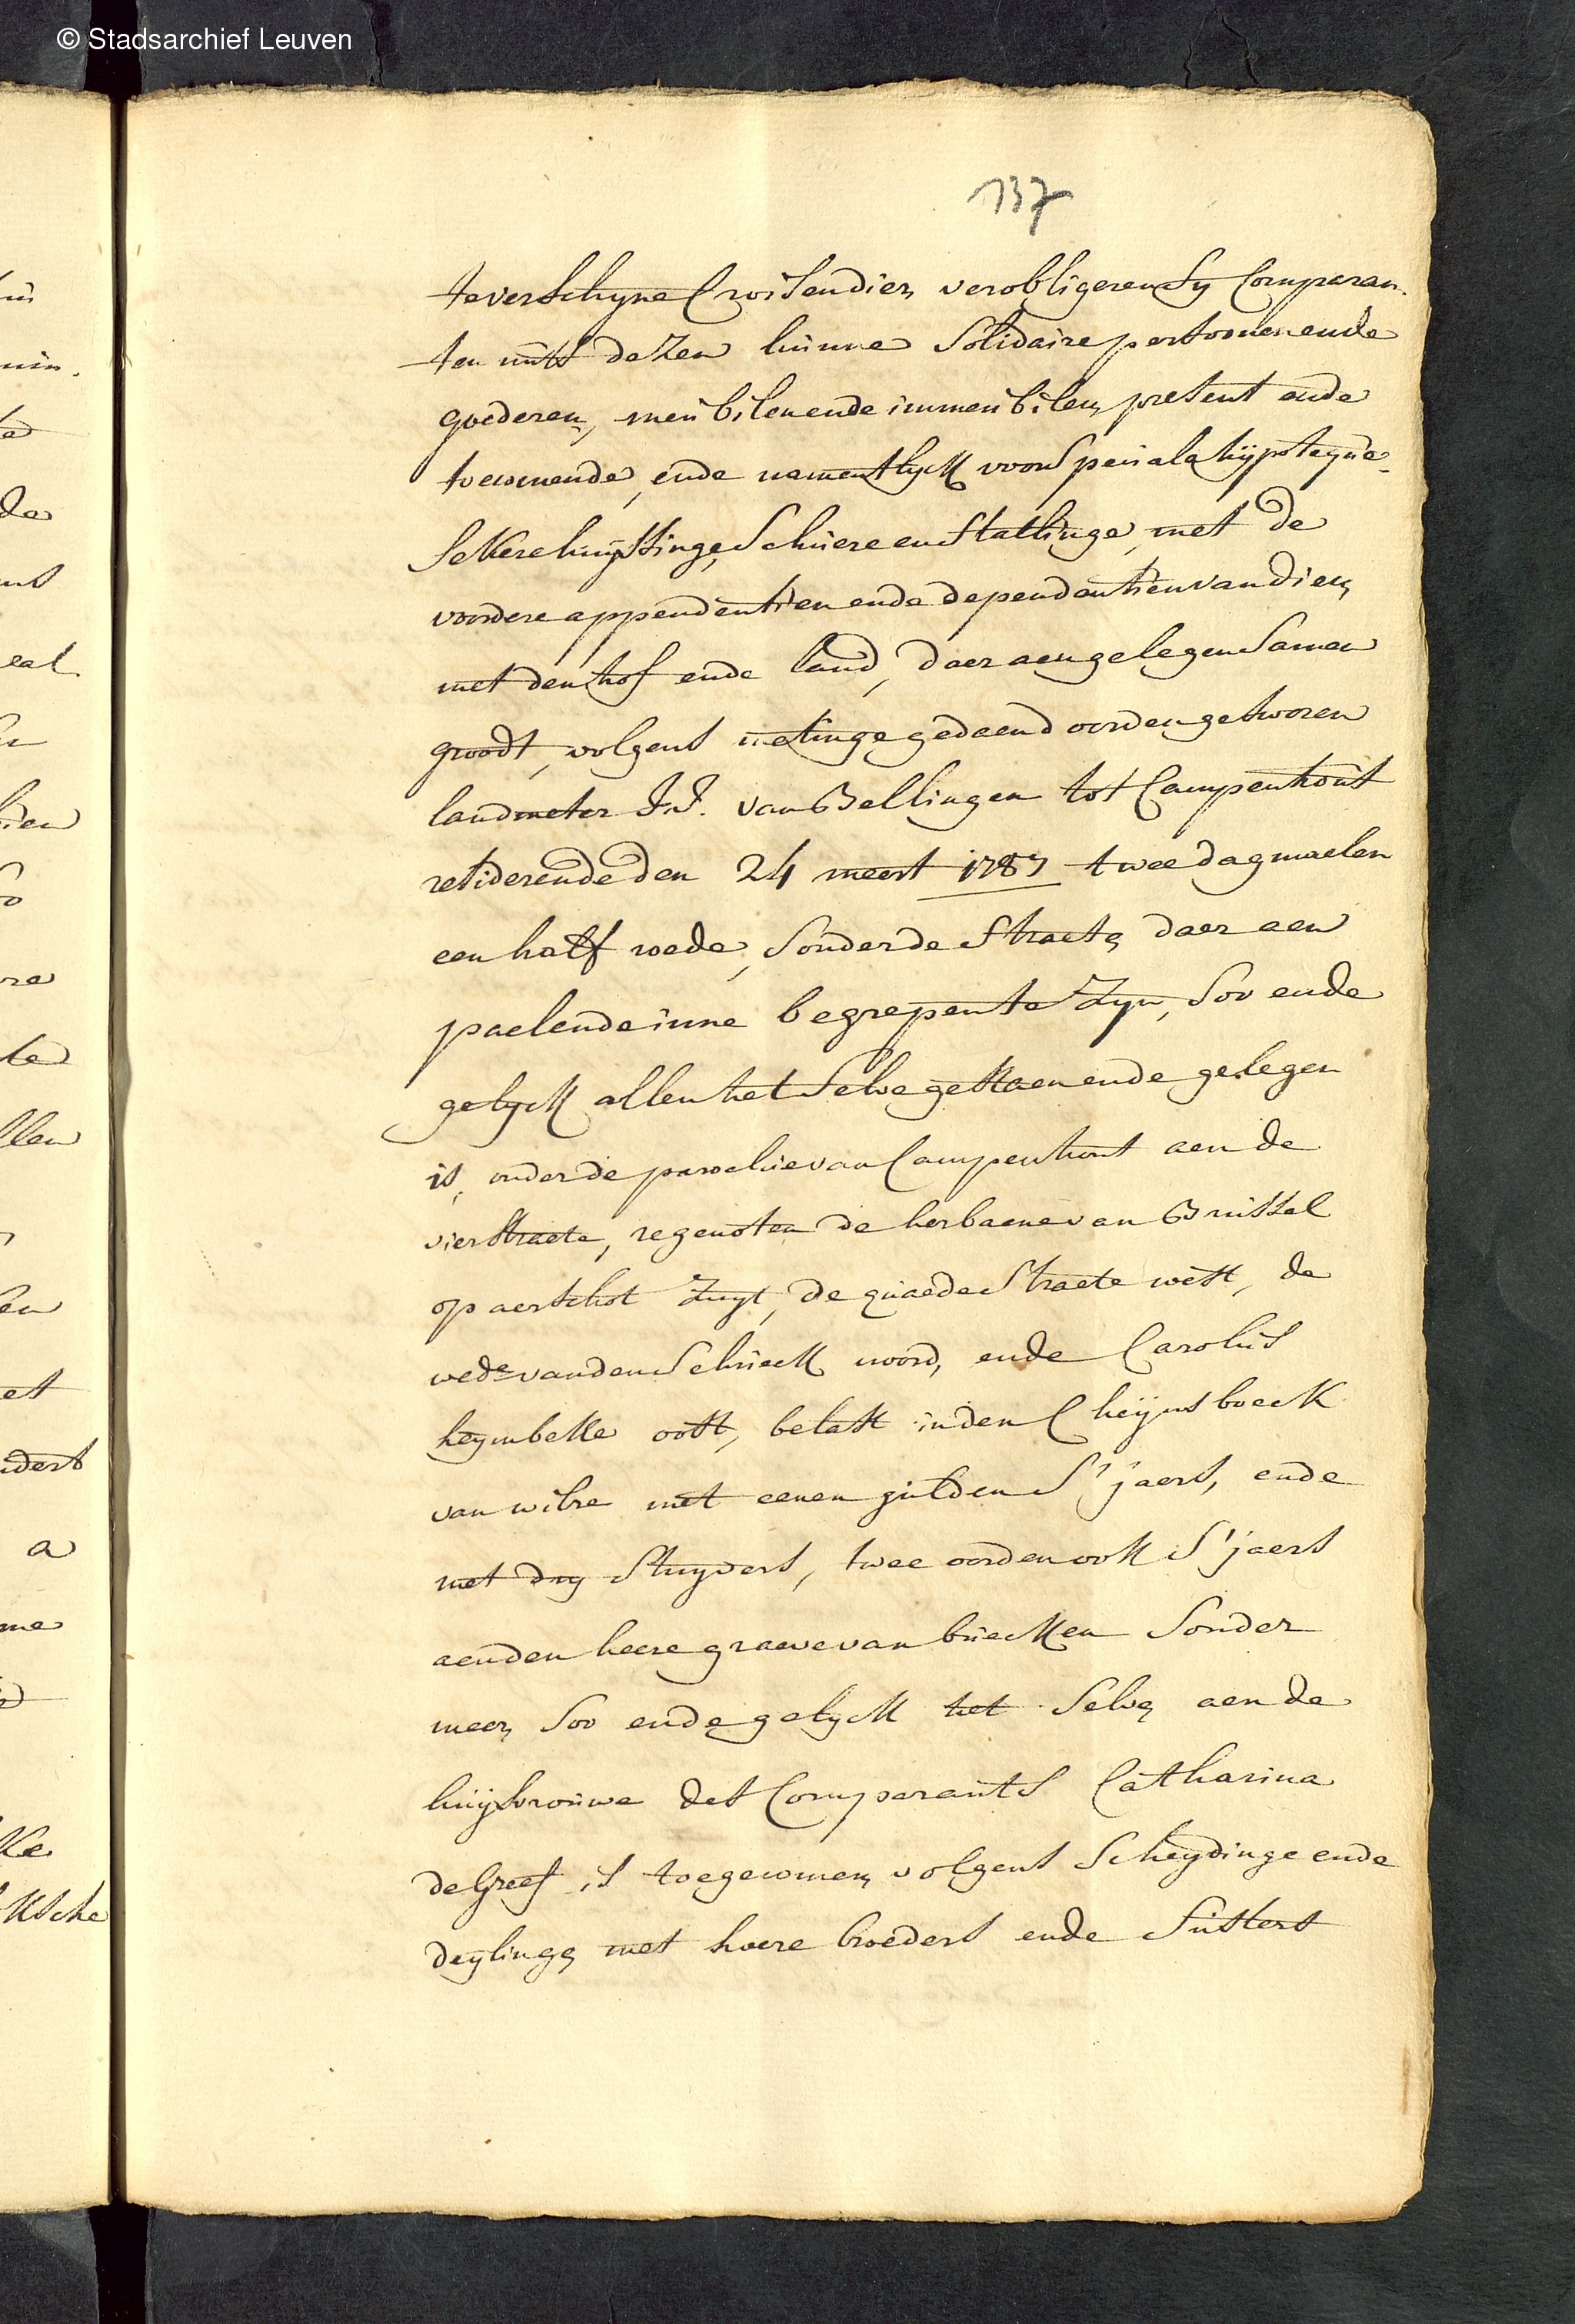 © Stadsarchief Leuven
137
te verschyne Croisen dien verobligeren sy Comparan-
ten mits dezen hunne solidaire persoonen ende
goederen, meubilen ende immeubilen present ende
toecomende, ende namentlyck voor speciale hypoteque
sekere huyssinge, schuere en stallinge, met de
voordere appendentien ende dependentien van dien
met den hof ende land, daer aengelegen samen
groodt, volgens metinge gedaen door den gesworen
landmeter J.J. van Bellingen tot Campenhout
residerende den 24 meert 1787 twee dagmaelen
een half roede, sonder de straete daer aen
paelende inne begrepen te zyn, soo ende
gelyck allen het selve gestaen ende gelegen
is, onder de parochie van Campenhout aen de
vierstraete, regenoten de herbaene van Brussel
op aerschot zuyt, de quaede straete west, de
wede van den Schrieck noord, ende Carolus
heymbekke oost, belast in den Cheynsboeck
van wilre met eenen gulden s'jaers, ende
met dry stuyvers, twee oorden ook s'jaers
aen den heere graeve van buecken sonder
meer, soo ende gelyck het selve aen de
huysvrouwe des Comparants Catharina
de Greef is toegecomen volgens scheydinge ende
deylinge met haere broeders ende susters